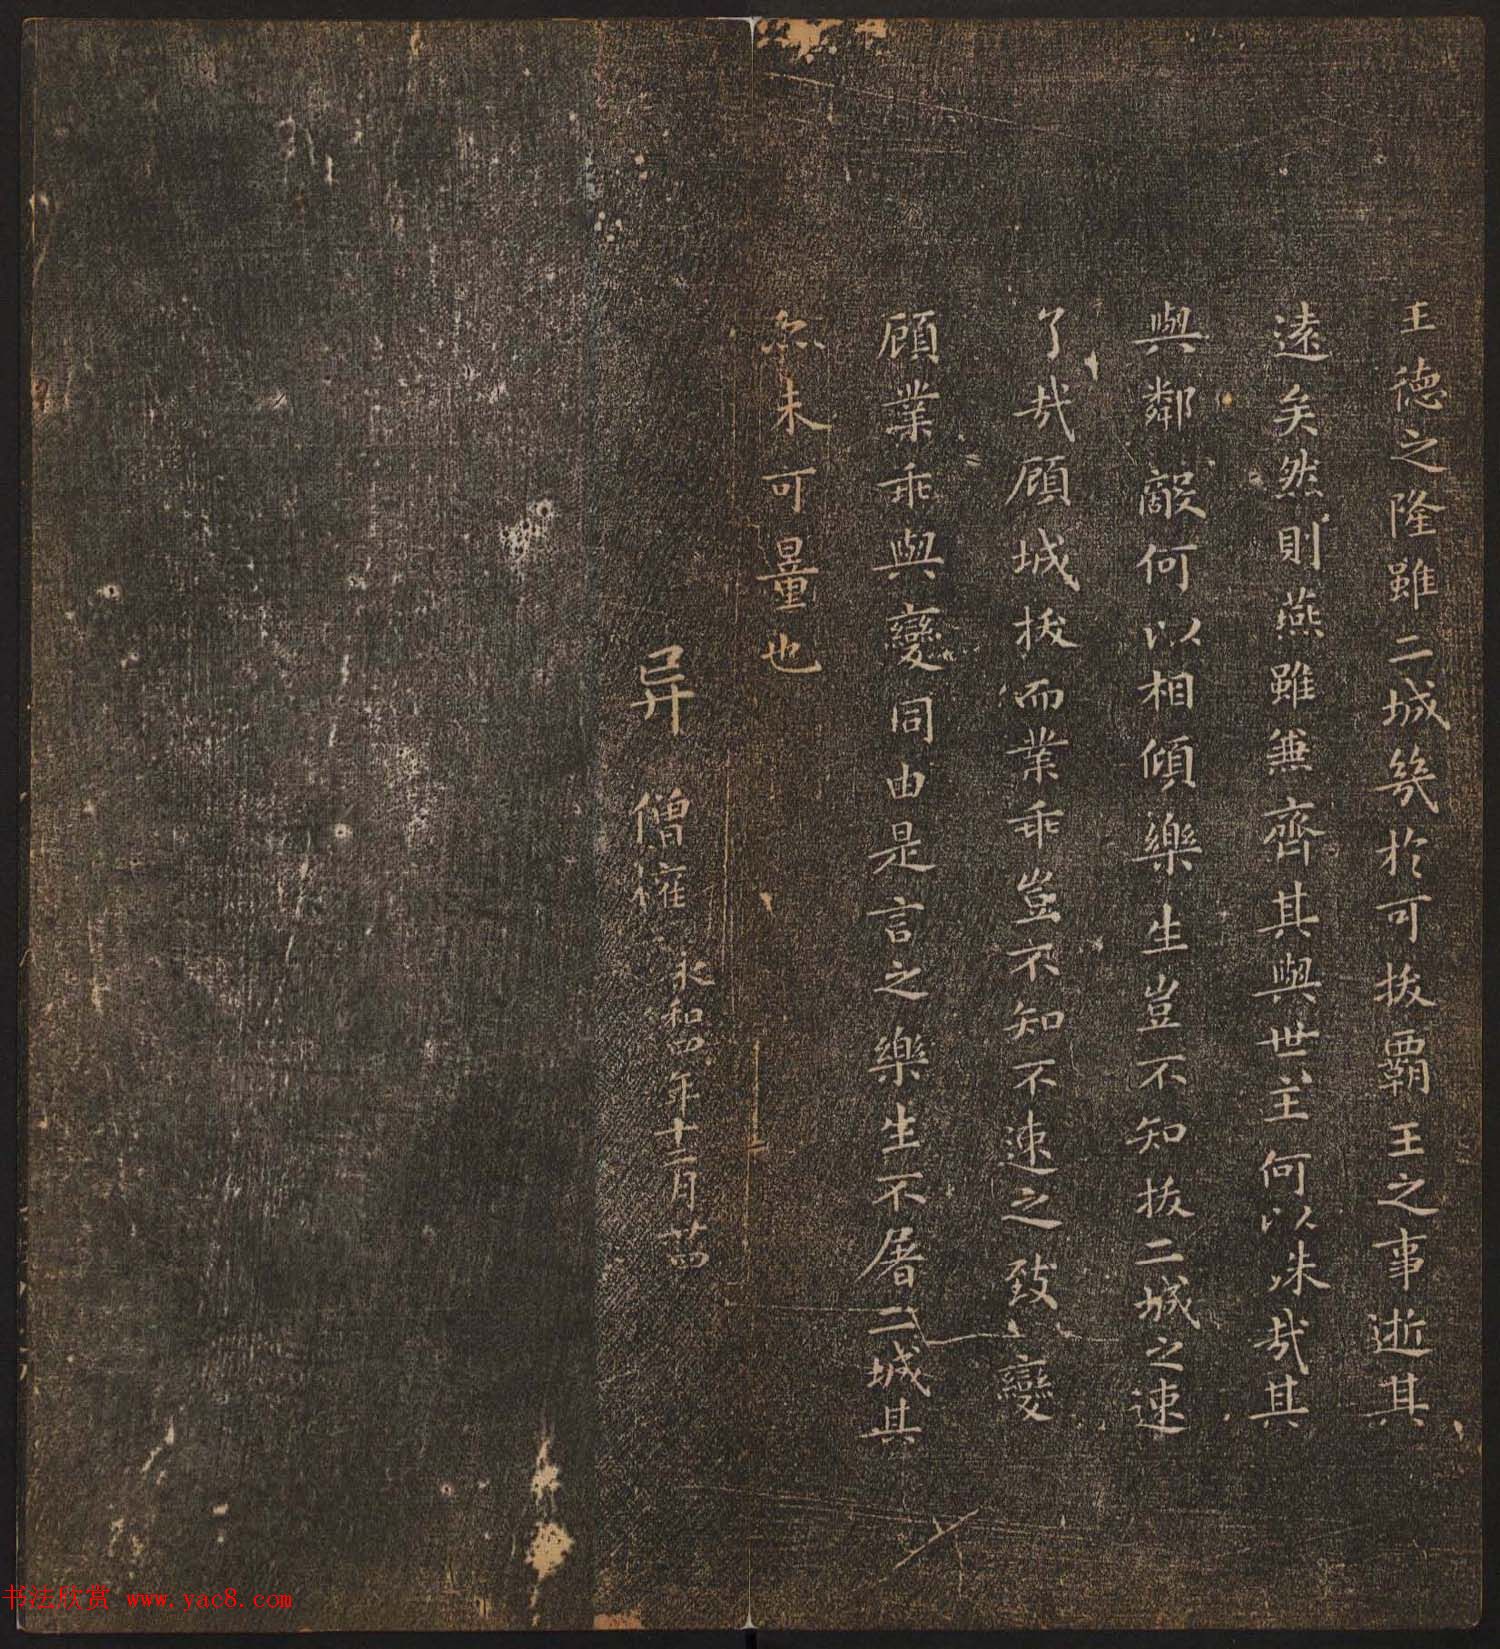 王德之隆雖二城幾於可拔霸王之事逝其
遠矣然則燕雖兼齊其與世主何以殊哉其
與鄰敵何以相傾樂生豈不知拔二城之速
了哉顧城拔而業乖豈不知不速之致變
顧業乖與變同由是言之樂生不屠二城其
亦未可量也
异 僧權
永和四年十二月廿四
书法欣赏 www.yac8.com